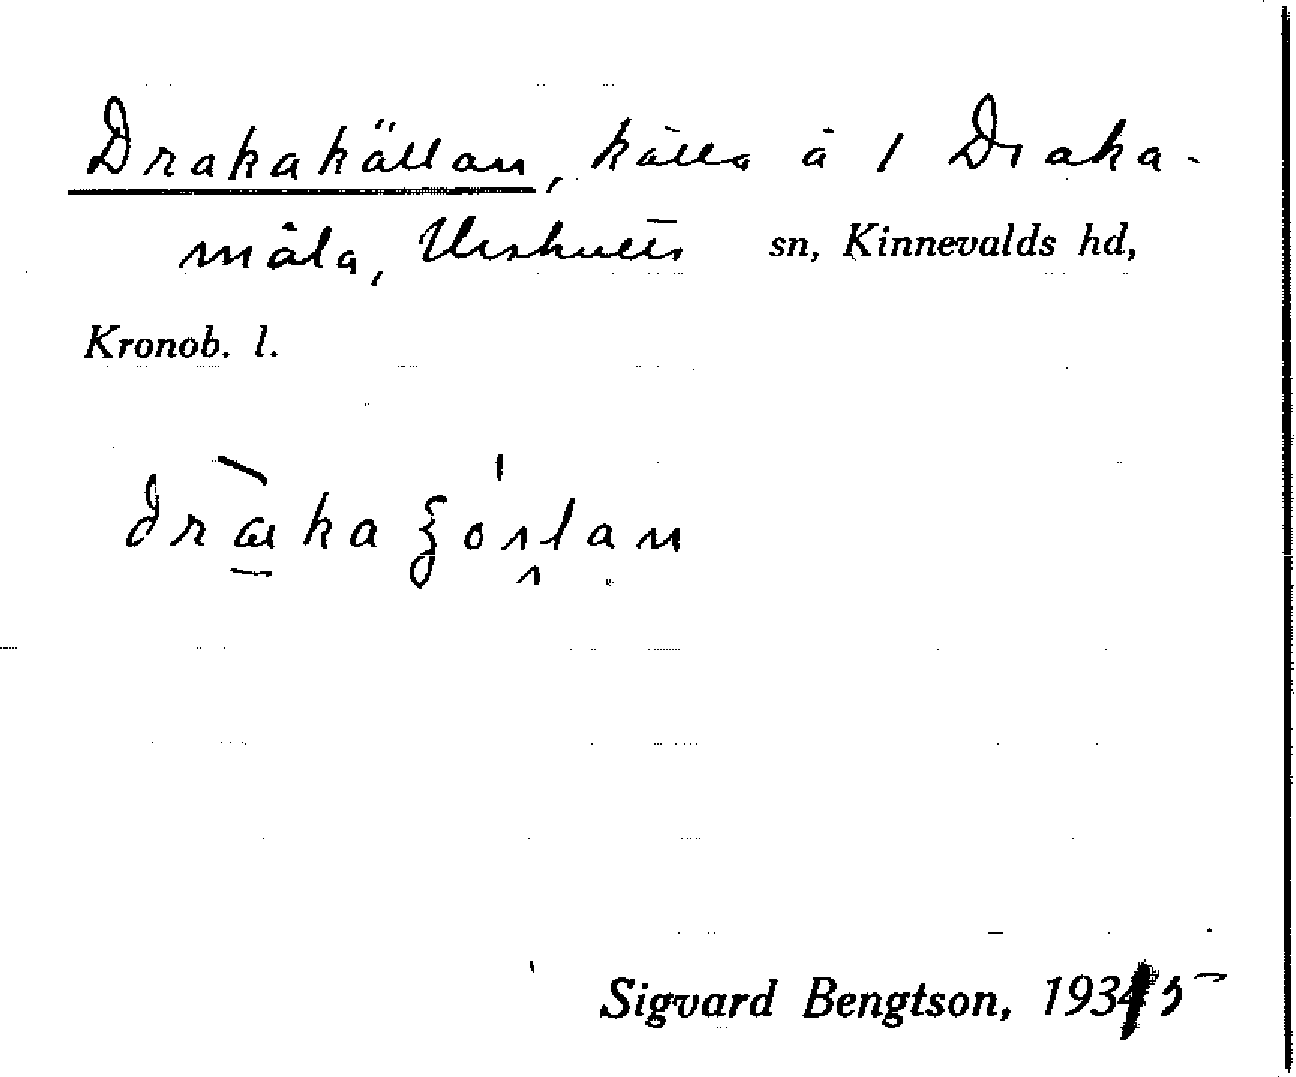 Drakakällan, källa å 1 Draka-
måla, Urshults sn, Kinnevalds hd,
Kronob. l.
Sigvard Bengtson, 1935